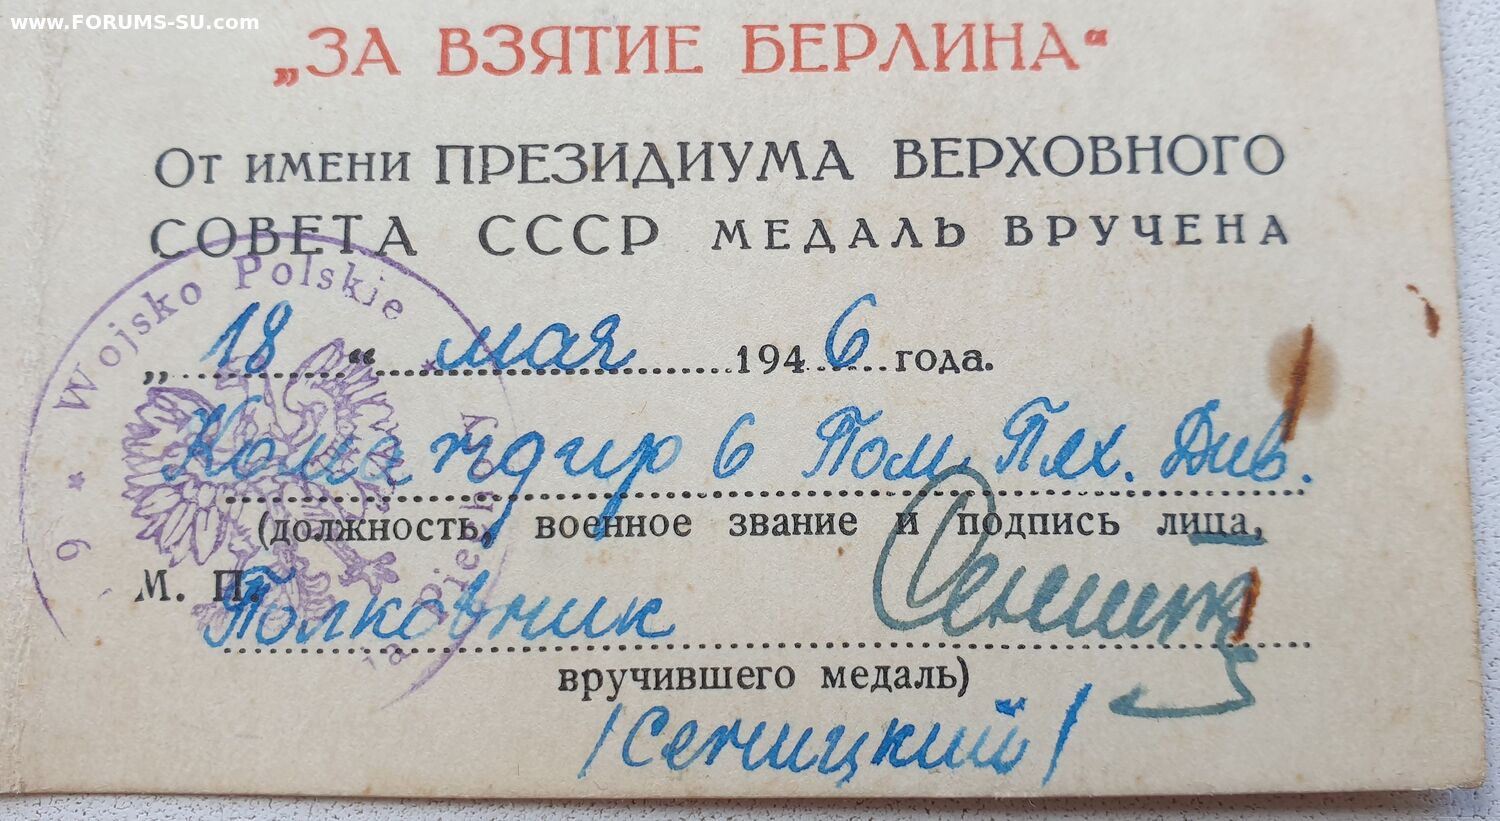 www.FORUMS-SU.com
„ЗА ВЗЯТИЕ БЕРЛИНА“
От имени ПРЕЗИДИУМА ВЕРХОВНОГО
СОВЕТА СССР МЕДАЛЬ ВРУЧЕНА
„18“ мая 1946 года.
Командир 6 Пом. Пех. Див.
(должность, военное звание и подпись лица,
М. П. Полковник
вручившего медаль)
/Сеницкий/
6 * Wojsko Polskie *